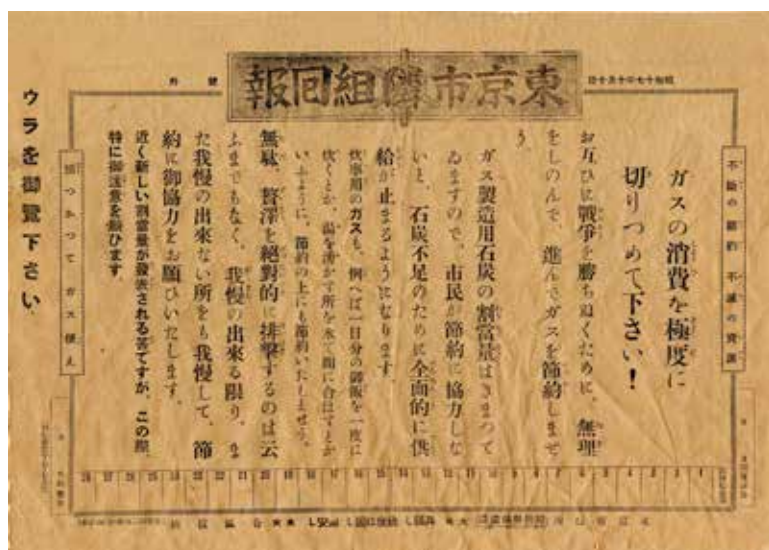 東京市隣組回報
號外
昭和十七年十月十日
不断の節約 不滅の資源
ガスの消費を極度に
切りつめて下さい!
お互ひに戰爭を勝ち迫くために、無理
をしのんで、進んでガスを節約しませ
う
ガス製造用石炭の割當量はきまつて
ゐますので、市民が節約に協力しな
いと、石炭不足のために全面的に供
給が止まるようになります。
炊事用のガスも、例へば一日分の御飯を一度に
炊くとか、湯を沸かす所を水で間に合はすとか
いふように、節約の上にも節約いたしませう。
無駄、贅澤を絕對的に排撃するのは云
ふまでもなく、我慢の出來る限り、ま
た我慢の出來ない所をも我慢して、節
約に御協力をお願ひいたします。
近く新しい割當量が發表される筈ですが、この際
特に御注意を願ひます。
つかつて ガス使え
ウラを御覽下さい
1 2 3 4 5 6 7 8 9 10 11 12 13 14 15 16 17 18 19 20 21 22 23 24 25 26